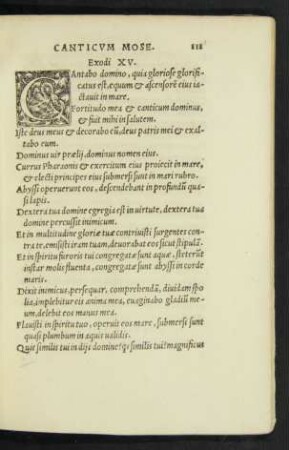 CANTICVM MOSE.
Exodi XV.
CAntabo domino, quia gloriose glorifi
catus est, equum & ascensorē eius ia
ctauit in mare.
Fortitudo mea & canticum dominus,
& fuit mihi in salutem.
Iste deus meus & decorabo eū, deus patris mei & exal
tabo eum.
Dominus uir prælij, dominus nomen eius.
Currus Pharaonis & exercitum eius proiecit in mare,
& electi principes eius submersi sunt in mari rubro.
Abyssi operuerunt eos, descendebant in profundū qua
si lapis.
Dextera tua domine egregia est in uirtute, dextera tua
domine percussit inimicum.
Et in multitudine gloriæ tuæ contriuisti surgentes con
tra te, emisisti iram tuam, deuorabat eos sicut stipulā.
Et in spiritu furoris tui congregatæ sunt aquæ, steterūt
instar molis fluenta, congregatæ sunt abyssi in corde
maris.
Dixit inimicus, persequar, comprehendā, diuidam spo
lia, implebitur eis anima mea, euaginabo gladiū me
um, delebit eos manus mea.
Flauisti in spiritu tuo, operuit eos mare, submersi sunt
quasi plumbum in aquis ualidis.
Quis similis tui in dijs domine? q̄s similis tui? magnificus